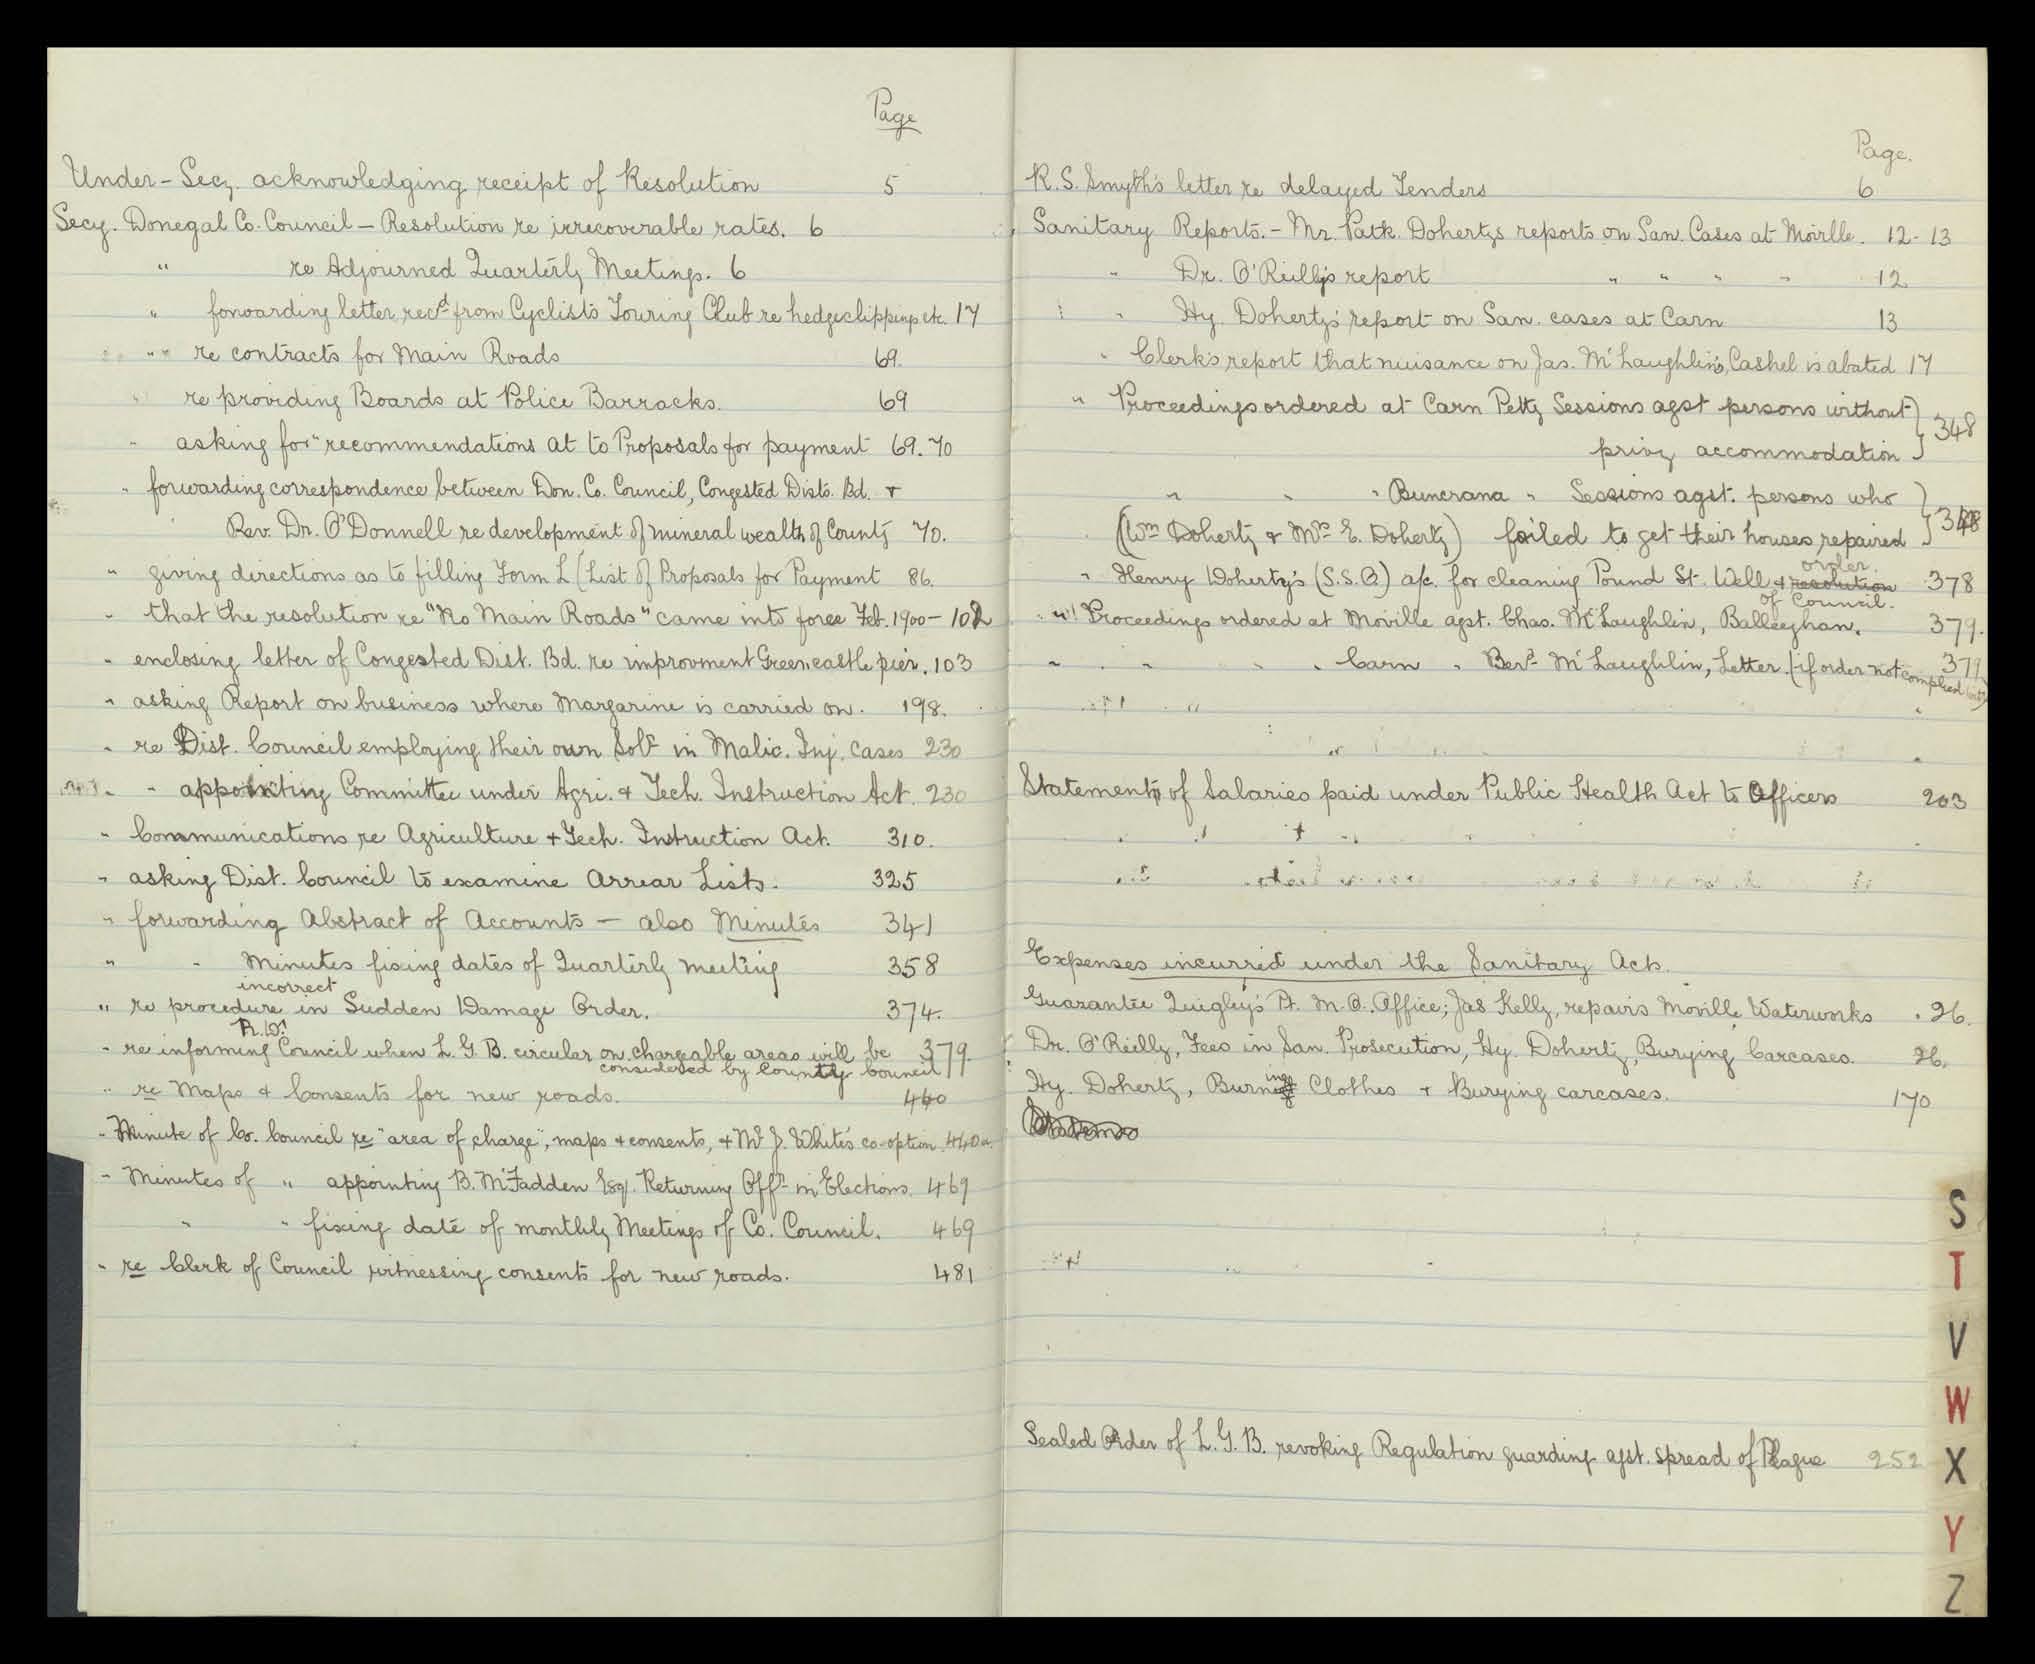 Page
Under-Secy. acknowledging receipt of Resolution 5
Secy. Donegal Co. Council — Resolution re irrecoverable rates. 6
" re Adjourned Quarterly Meetings. 6
" forwarding letter recd from Cyclists Touring Club re hedgeclipping etc. 17
" " re contracts for Main Roads 69.
" re providing Boards at Police Barracks. 69
" asking for recommendations at to Proposals for payment 69.70
" forwarding correspondence between Don. Co. Council, Congested Dists. Bd. +
Rev. Dr. O'Donnell re development of mineral wealth of County 70.
" giving directions as to filling Form L (List of Proposals for Payment 86.
" that the resolution re "No Main Roads" came into force Feb. 1900 - 102
" enclosing letter of Congested Dist. Bd. re improvment Greencastle pier. 103
" asking Report on business where Margarine is carried on. 198.
" re Dist. Council employing their own Solr in Malic. Inj. cases 230
" " appointing Committee under Agri. & Tech. Instruction Act. 230
" Communications re Agriculture + Tech. Instruction Act. 310.
" asking Dist. Council to examine Arrear Lists. 325
" forwarding Abstract of Accounts — also Minutes 341
" " Minutes fixing dates of Quarterly meeting 358
incorrect
" re procedure in Sudden Damage Order. 374.
R.D.
" re informing Council when L.G.B. circular on chargeable areas will be 379.
considered by County Council
" re Maps & Consents for new roads. 440
" Minute of Co. Council re "area of charge", maps & consents, & Mr J. White's co-option. 440a.
" Minutes of " appointing B. McFadden Esq. Returning Offr in Elections. 469
" " fixing date of monthly Meetings of Co. Council. 469
" re Clerk of Council witnessing consents for new roads. 481
Page.
R.S. Smyth's letter re delayed Tenders 6
Sanitary Reports. - Mr. Patk. Dohertys reports on San. Cases at Moville. 12-13
" Dr. O'Reilly's report " " " " 12
" Hy. Doherty's report on San. cases at Carn 13
" Clerk's report that nuisance on Jas. McLaughlin's, Cashel is abated 17
" Proceedings ordered at Carn Petty Sessions agst persons without
privy accommodation } 348
" " " Buncrana " Sessions agst. persons who
(Wm Doherty & Mrs E. Doherty) failed to get their houses repaired } 348
order
" Henry Doherty's (S.S.O.) a/c. for cleaning Pound St. Well & resolution 378
of Council.
" Proceedings ordered at Moville agst. Chas. McLaughlin, Balleeghan. 379.
" " " " Carn " Berd McLaughlin, Letter. (if order not complied with) 379
Statements of Salaries paid under Public Health Act to Officers 203
Expenses incurred under the Sanitary Acts.
Guarantee Quigley's Pt. M.O. Office; Jas Kelly, repairs Moville Waterworks 26.
Dr. O'Reilly, Fees in San. Prosecution, Hy. Doherty, Burying Carcases. 26.
Hy. Doherty, Burning Clothes + Burying carcases. 170
Sealed Order of L.G.B. revoking Regulation guarding agst. spread of Plague 252
S
T
V
W
X
Y
Z